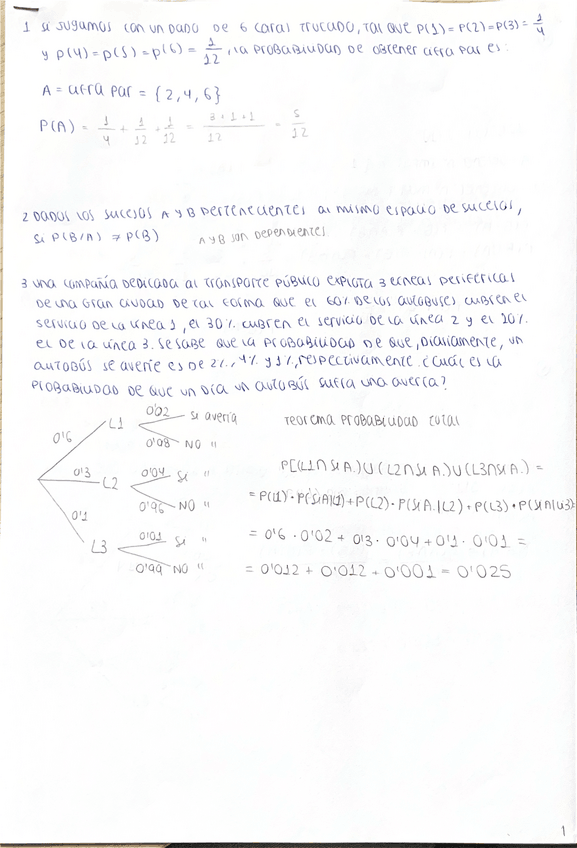 1 si jugamos con un dado de 6 caras trucado, tal que P(1)=P(2)=P(3)= 1/4
y P(4)=P(5)=P(6)= 1/12, la probabilidad de obtener cifra par es:
A = cifra par = {2,4,6}
P(A) = 1/4 + 1/12 + 1/12 = 3+1+1/12 = 5/12
2 Dados los sucesos A y B pertenecientes al mismo espacio de sucesos,
si P(B/A) ≠ P(B) A y B son dependientes
3 una compañía dedicada al transporte público explota 3 líneas periféricas
de una gran ciudad de tal forma que el 60% de los autobuses cubren el
servicio de la línea 1, el 30% cubren el servicio de la línea 2 y el 10%
el de la línea 3. Se sabe que la probabilidad de que, diariamente, un
autobús se averíe es de 2%, 4% y 1%, respectivamente. ¿cuál es la
probabilidad de que un día un autobús sufra una avería?
0'6 L1 0'02 si avería
0'08 NO "
0'3 L2 0'04 si "
0'96 NO "
0'1 L3 0'01 si "
0'99 NO "
Teorema probabilidad total
P[(L1∩si A.)∪(L2∩si A.)∪(L3∩si A.) =
= P(L1)·P(si A|L1)+P(L2)·P(si A.|L2)+P(L3)·P(si A|L3)=
= 0'6 · 0'02 + 0'3 · 0'04 + 0'1 · 0'01 =
= 0'012 + 0'012 + 0'001 = 0'025
1